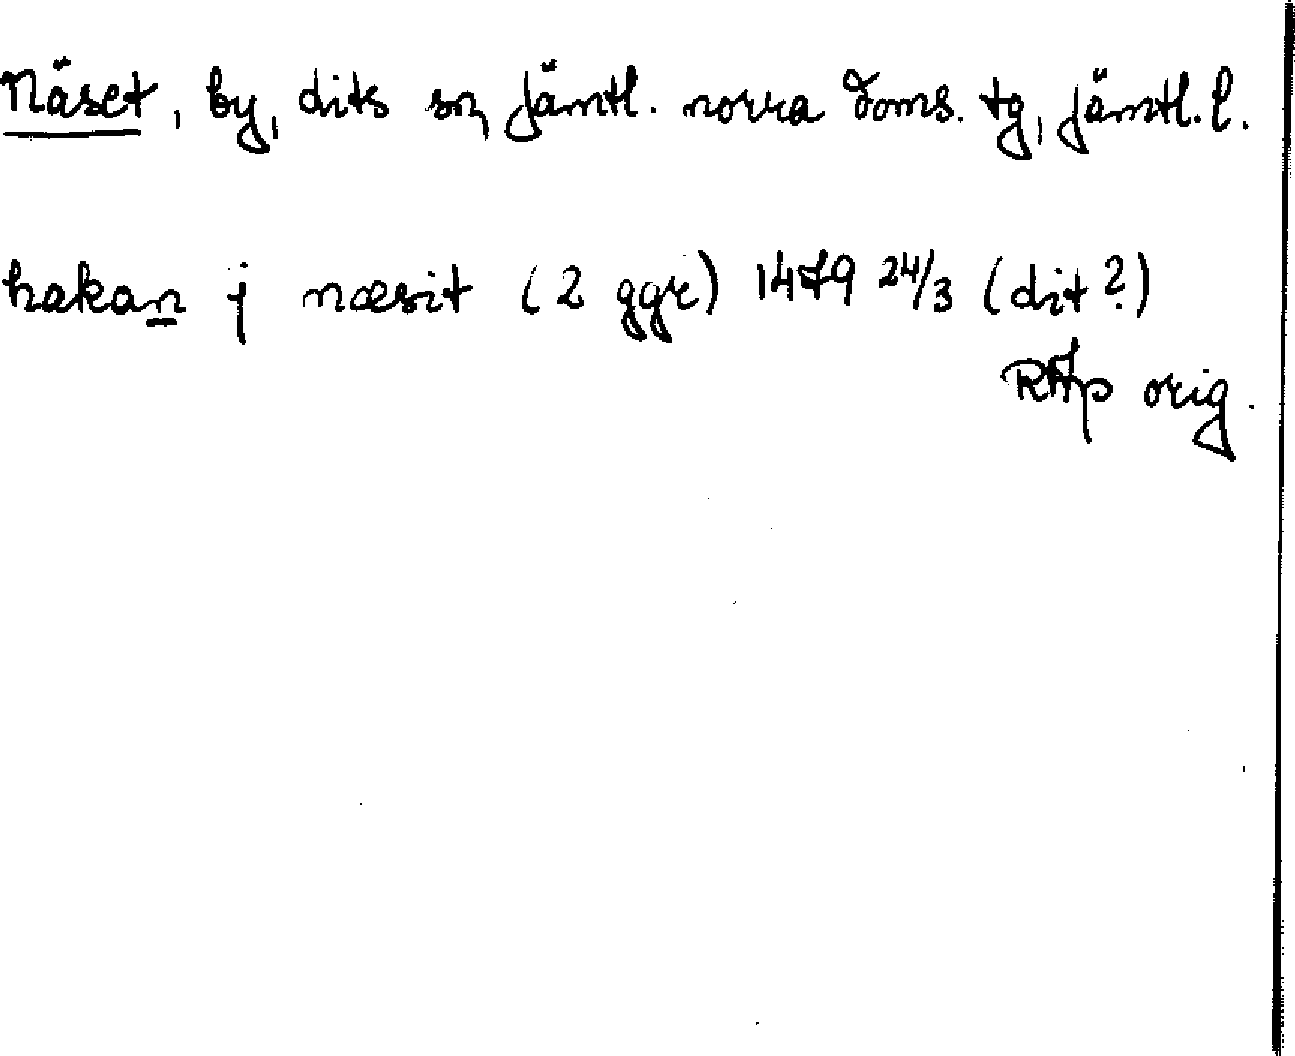 Näset, by, Lits sn, Jämtl. norra doms. tg, Jämtl. l.
hakan j næsit (2 ggr) 1479 24/3 (Lit?)
RAp orig.